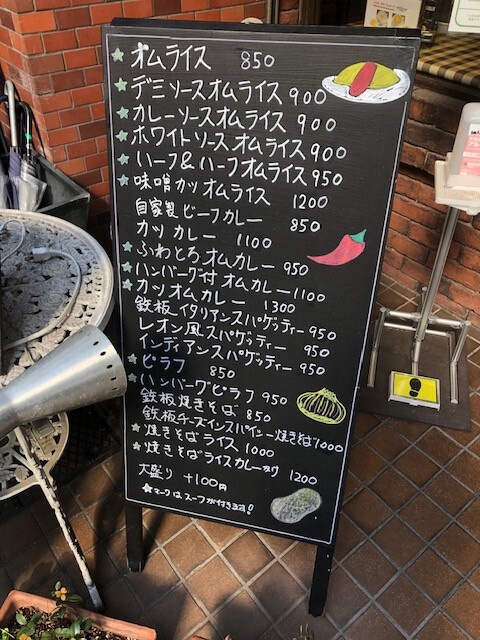 ☆オムライス 850
☆デミソースオムライス 900
☆カレーソースオムライス 900
☆ホワイトソースオムライス 900
☆ハーフ&ハーフオムライス 950
☆味噌カツオムライス 1200
自家製ビーフカレー 850
カツカレー 1100
☆ふわとろオムカレー 950
☆ハンバーグ付オムカレー 1100
☆カツオムカレー 1300
鉄板イタリアンスパゲッティー 950
レオン風スパゲッティー 950
インディアンスパゲッティー 950
☆ピラフ 850
☆ハンバーグピラフ 950
鉄板焼きそば 850
鉄板チーズインスパイシー焼きそば 1000
☆焼きそばライス 1000
☆焼きそばライスカレーがけ 1200
大盛り +100円
☆マークはスープが付きます!